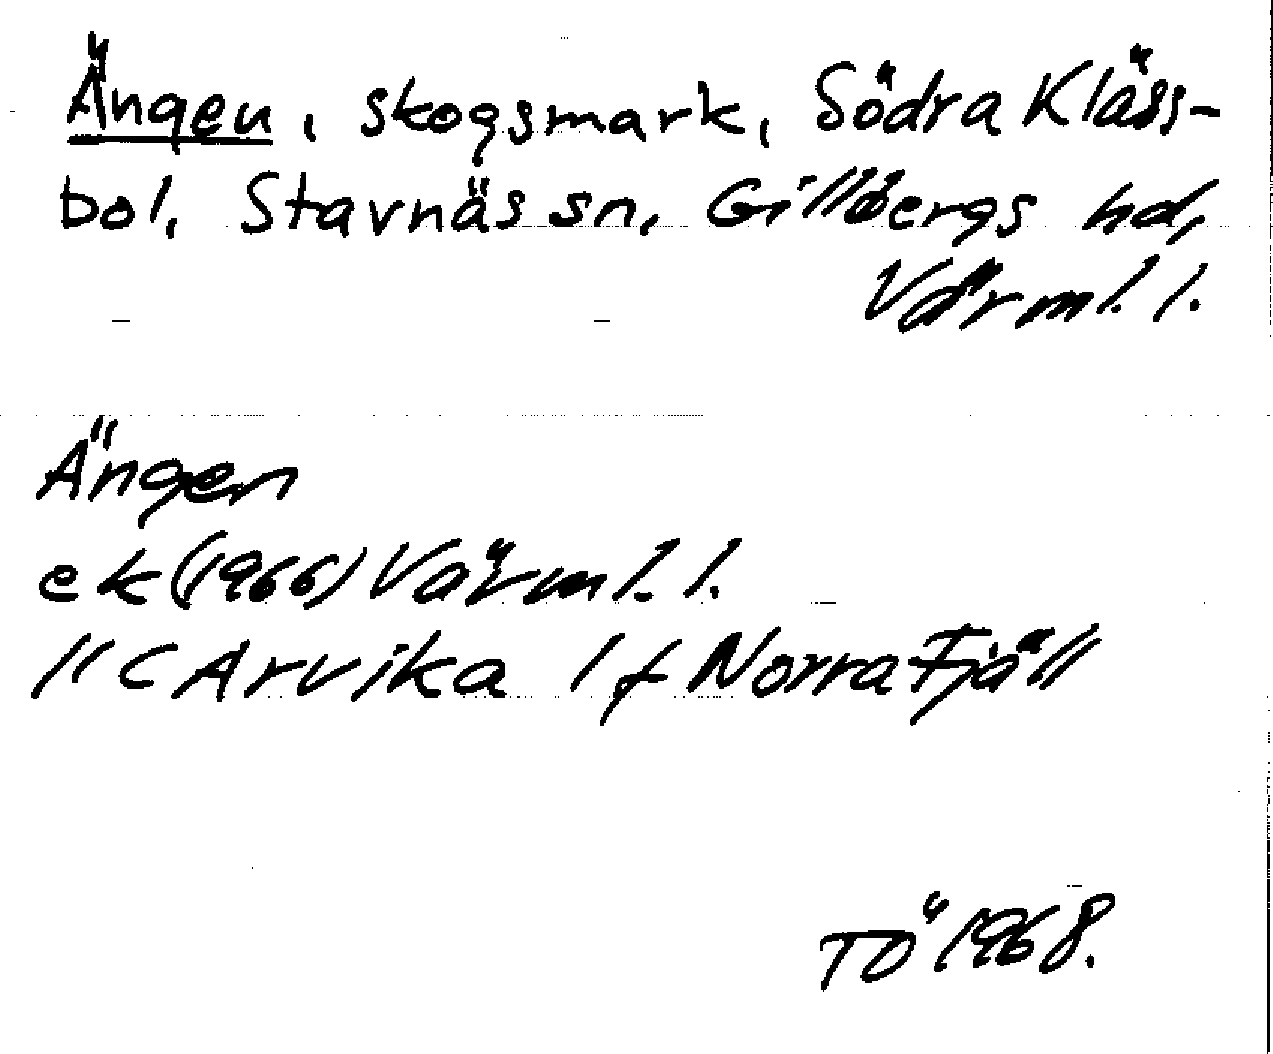 Ängen, skogsmark, Södra Kläss-
bol, Stavnäs sn, Gillbergs hd,
Värml. l.
Ängen
ek (1966) Värml. l.
11 C Arvika 1 f Norra Fjäll
TÖ 1968.